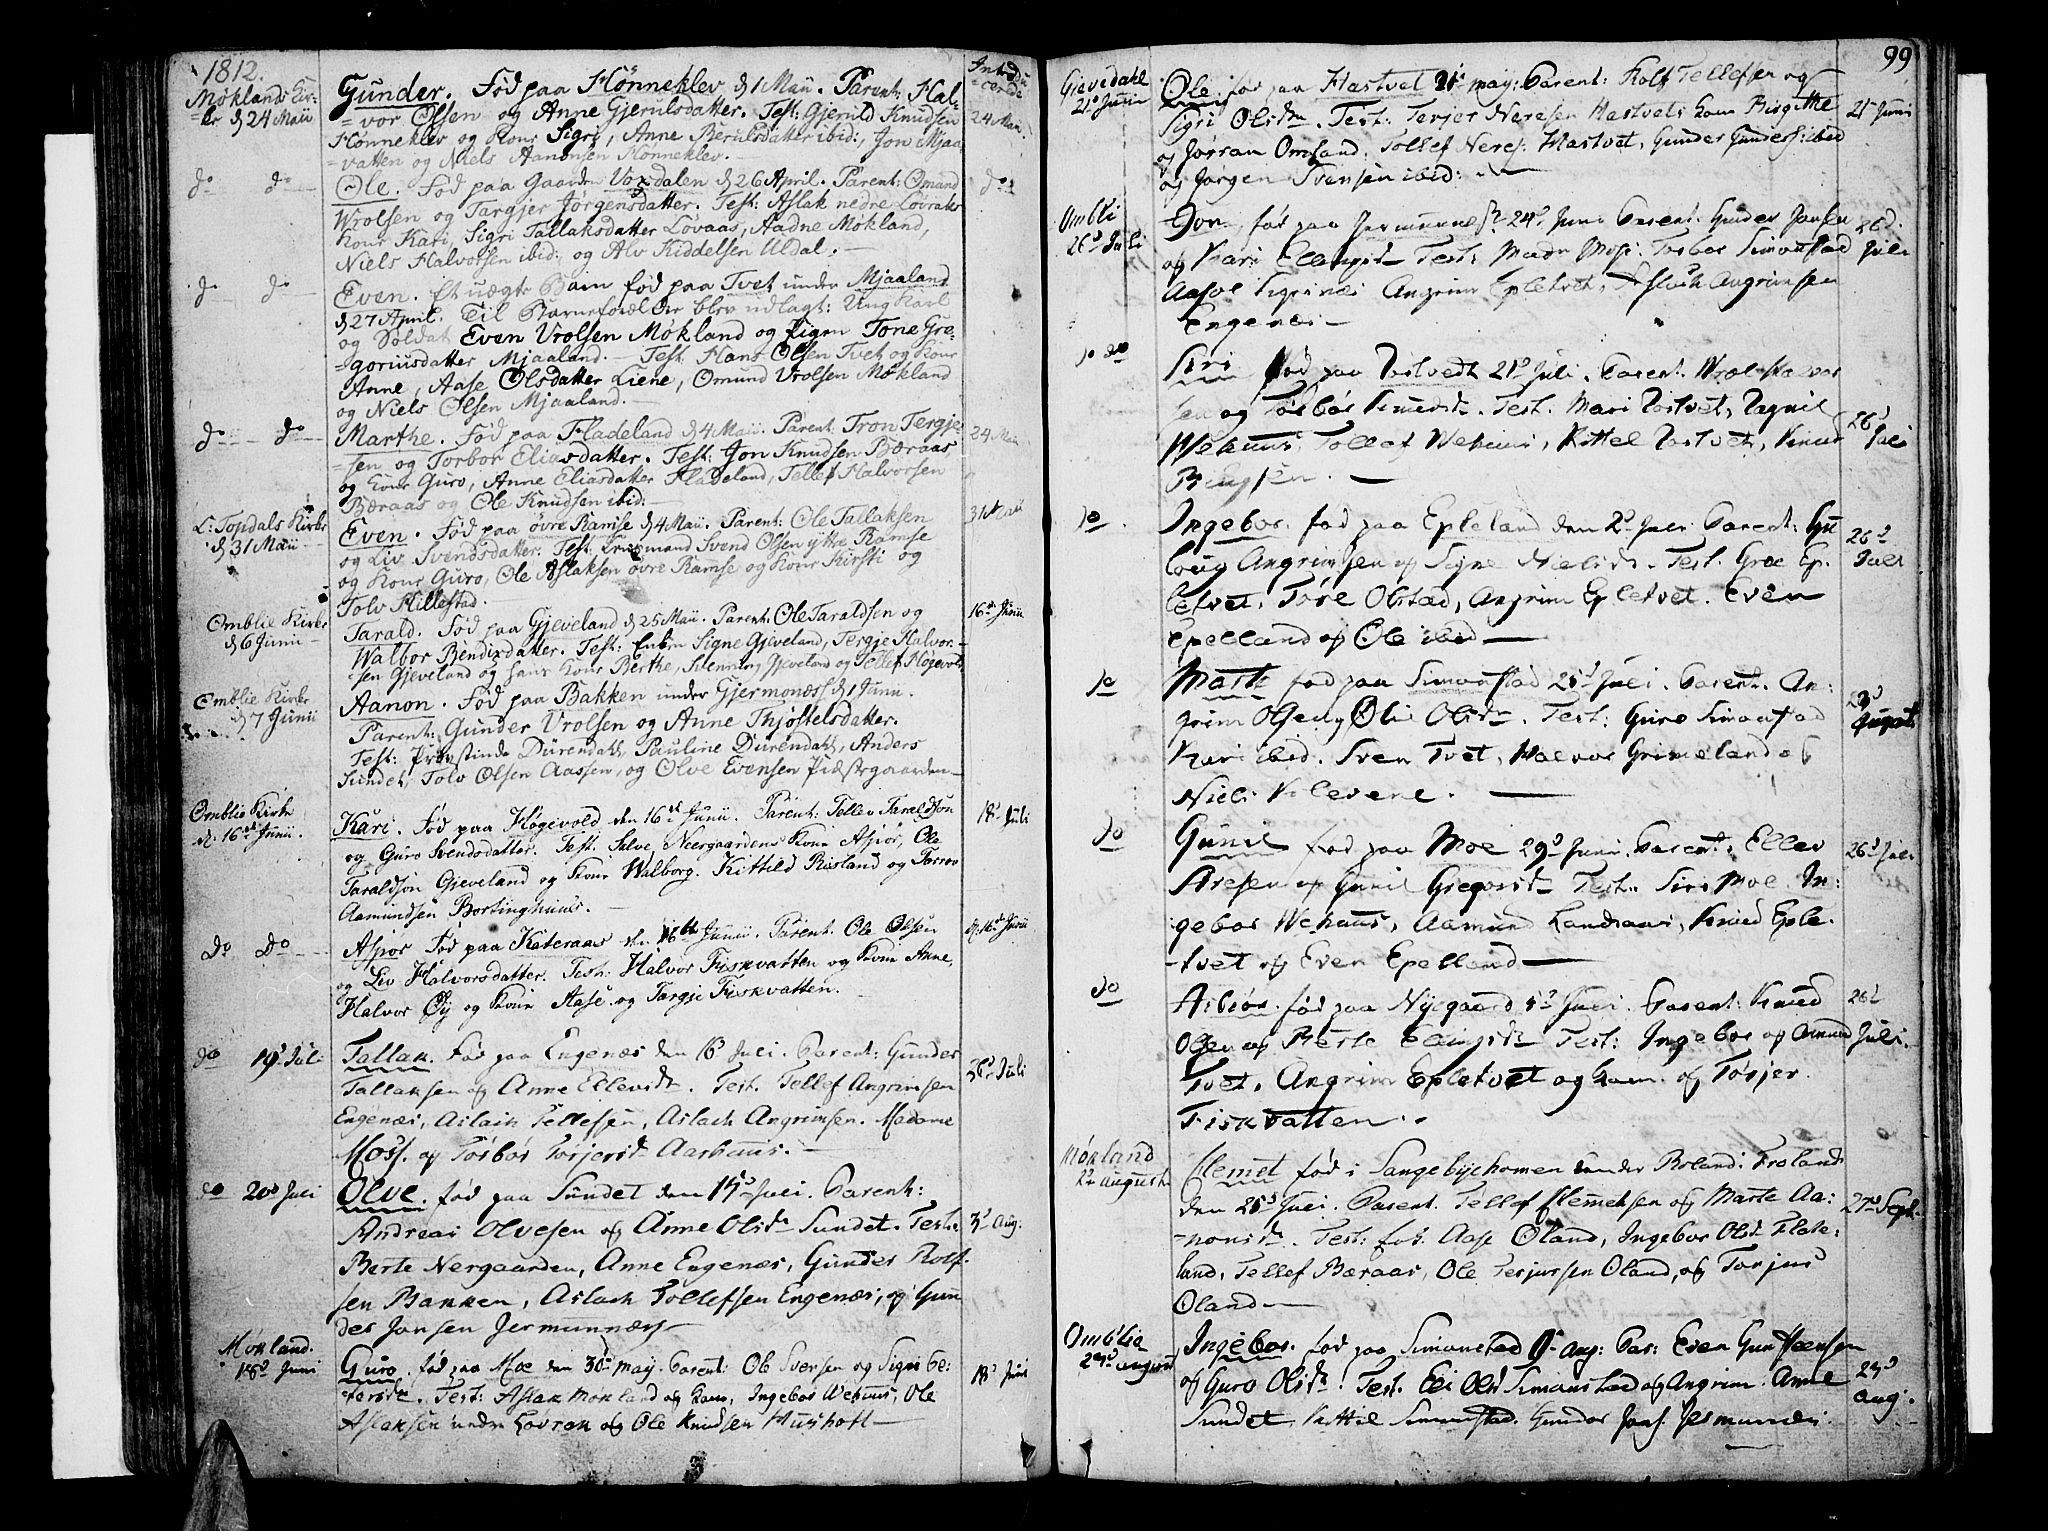 1812.
Møklands Kir-
=ke d 24 Maii
Introdu
=cerede
Gunder. Fød paa Hønneklev d 1 Maii. Parent: Hal-
=vor Olsen og Anne Gjerulsdatter. Test: Gjeruld Knudsen
24 Maii
Hønneklev og Kone Sigri, Anne Berulsdatter ibid:, Jon Mjaa
=vatten og Niels Aanonsen Hønneklev.
do do
Ole. Fød paa Gaarden Voxdalen d 26 April. Parent: Omund
do
Wrolsen og Targjer Jörgensdatter. Test: Aslak nedre Lövraks
Kone Kari, Sigri Tallaksdatter Løvaas, Aadne Møkland,
Niels Halvorsen ibid:, og Alv Kiddelsen Uldal.
do do
Even. Et uægte Barn fød paa Tvet under Mjaaland
d 27 April. Til Barneforældre blev udlagt: Ung Karl
og Soldat Even Vrolsen Møkland og Pigen Tone Gre-
=goriusdatter Mjaaland. Test: Hans Olsen Tvet og Kone
Anne, Aase Olsdatter Liene, Omund Vrolsen Møkland
og Niels Olsen Mjaaland.
do do
Marthe. Fød paa Fladeland d 4 Maii. Parent: Tron Tergje-
24 Maii
=sen og Torbor Eliasdatter. Test: Jon Knudsen Bæraas
og Kone Guro, Anne Eliasdatter Fladeland, Tellef Halvorsen
Bæraas og Ole Knudsen ibid:
L: Topdals Kirke
d 31 Maii
Even. Fød paa øvre Ramse d 4 Maii. Parent: Ole Tallaksen
31 Maii
og Liv Svendsdatter. Test: Svend Olsen yttre Ramse
og Kone Guro, Ole Aslaksen øvre Ramse og Kone Kirsti og
Tolv Hillestad.
Omblie Kirke
d 6 Junii
Tarald. Fød paa Gjeveland d 25 Maii. Parent: Ole Taraldsen og
16 Junii
Walbor Bendixdatter. Test: Enken Signe Gjeveland, Tergje Halvor-
=sen Gjeveland og hans Kone Berthe, Gjeveland og Tellef Høgevold
Omblie Kirke
d 7 Junii
Aanon. Fød paa Bakken under Gjermonæss d 1 Junii.
Parent: Gunder Vrolsen og Anne Thjøstelsdatter.
Test: Provstinde Dürendahl, Pauline Dürendahl, Anders
Sundet, Tolv Olsen Aassen, og Olve Evensen Præstegaarden
Omblie Kirke
d. 16 Junii.
Kari. Fød paa Høgevold den 16 Junii. Parent: Tellev Taraldsøn
18 Juli
og Guro Svendsdatter. Test: Salve Neergaardens Kone Asjør, Ole
Taraldsøn Gjeveland og Kone Walborg. Kittild Risland og Torrov
Aamundsen Bortinghuus.
Do Do
Asjør. Fød paa Kateraas den 16 Junii. Parent: Ole Olsen
d. 16 Junii
og Liv Halvorsdatter. Test: Halvor Fiskvatten og Kone Anne,
Halvor Øy og Kone Aase og Targje Fiskvatten.
do 19 Juli
Tallak. Fød paa Engenæs den 16 Juli. Parent: Gunder
26 Juli
Tallaksen og Anne Ellevsdr. Test. Tellef Angrimsen
Engenæs, Aslach Tellefsen, Aslach Angrimsen. Madame
Moss. og Torbor Torjersdr Aarhuus.
do 20 Juli
Olve. fød paa Sundet den 15 Juli. Parent:
Andreas Olvesen og Anne Olsdr Sundet. Test:
3 Aug:
Berte Nergaarden, Anne Engenæs, Gunder Rolf-
sen Bakken, Aslach Tollefsen Engenæs, og Gun
der Jonsen Jermunnæs
Mökland.
18 Juni
Guro. fød paa Moe den 30 may. Parent: Ole Svensen og Signi Pe-
18 Juni
tersdr. Test: Aslak Mokland og Kone, Ingebor Wehuus, Ole
Aslaksen nedre Lovrak og Ole Knudsen Huushoft
99
Gievedahl
21 Junii
Ole. fød paa Hastvet 21 may: Parent: Rolf Tellefsen og
21 Junii
Sigri Olsdr. Test: Terjer Neresen Hastvets Kone Birgitthe
og Jorran Omland. Tollef Neres: Hastvet, Gunder Gunders: ibid
og Jorgen Svensen ibid:
Ambli
26 Juli
Jon. fød paa Jermunnes 24 Juni Parent. Gunder Jonsen
26
Juli
og Kari Ellengsdr Test: Madm Moss: Torbor Simonstad
Aasvl Tigrinæs Angrim Epletvet, Aslach Angrimsen
Engenes
do
Siri fød paa Tostvedt 21 Juli. Parent. Wrol Halvor
sen og Torbor Knudsdr. Test. Mari Tostvet, Ragnil
26
Juli
Wehuus Tollef Wehuus, Kittel Tostvet, Knud
do.
Ingebor. fød paa Epleland den 2 Juli Parent: Gu
26
Juli
loug Angrimsen og Signe Nielsdr. Test. Groe Ep-
letvet, Tore Olstad, Angrim Epletvet. Even
Epelland og Ole ibid
do
Marte fød paa Simonstad 21 Juli. Parent. An-
23
August
grim Olsen og Oli Olsdr. Test: Guro Simonstad
Kari ibid. Sven Tvet, Halvor Grimeland og
Niels Kilevene.
do
Gunil fød paa Moe 29 Juni. Parent: Ellev
26 Juli
Aresen og Gunil Gregorsdr Test: Siri Moe. In-
gebor Wehuus, Aamund Landraas, Knud Eple-
-tvet og Even Epelland
do
Asbior. fød paa Nyegaard 5 Juli. Parent: Knud
26
Juli.
Olsen og Berte Test: Ingebor og Omund
Tvet. Angrim Epletvet og Kone. og Torjer
Fiskvatten.
Mökland
22 august
Clemet fød i Sangebyehomen under Roland i Froland
den 25 Juli. Parent. Tellef Clemetsen og Marte Aa-
27 Sept.
-nonsdr. Test: Aase Oland, Ingebor Olsdr Flate-
land, Tellef Bæraas, Ole Terjussen Oland, og Torjus
Oland
Omblie
23 august
Ingebor. fød paa Simonstad aug: Par: Even Gunstensen
23
aug.
og Guro Olsdr. Test. Eli Olsdr Simonstad og Angrim. Anne
Sundet, Kittil Simonstad. Gunder Jons: Jermunnes.